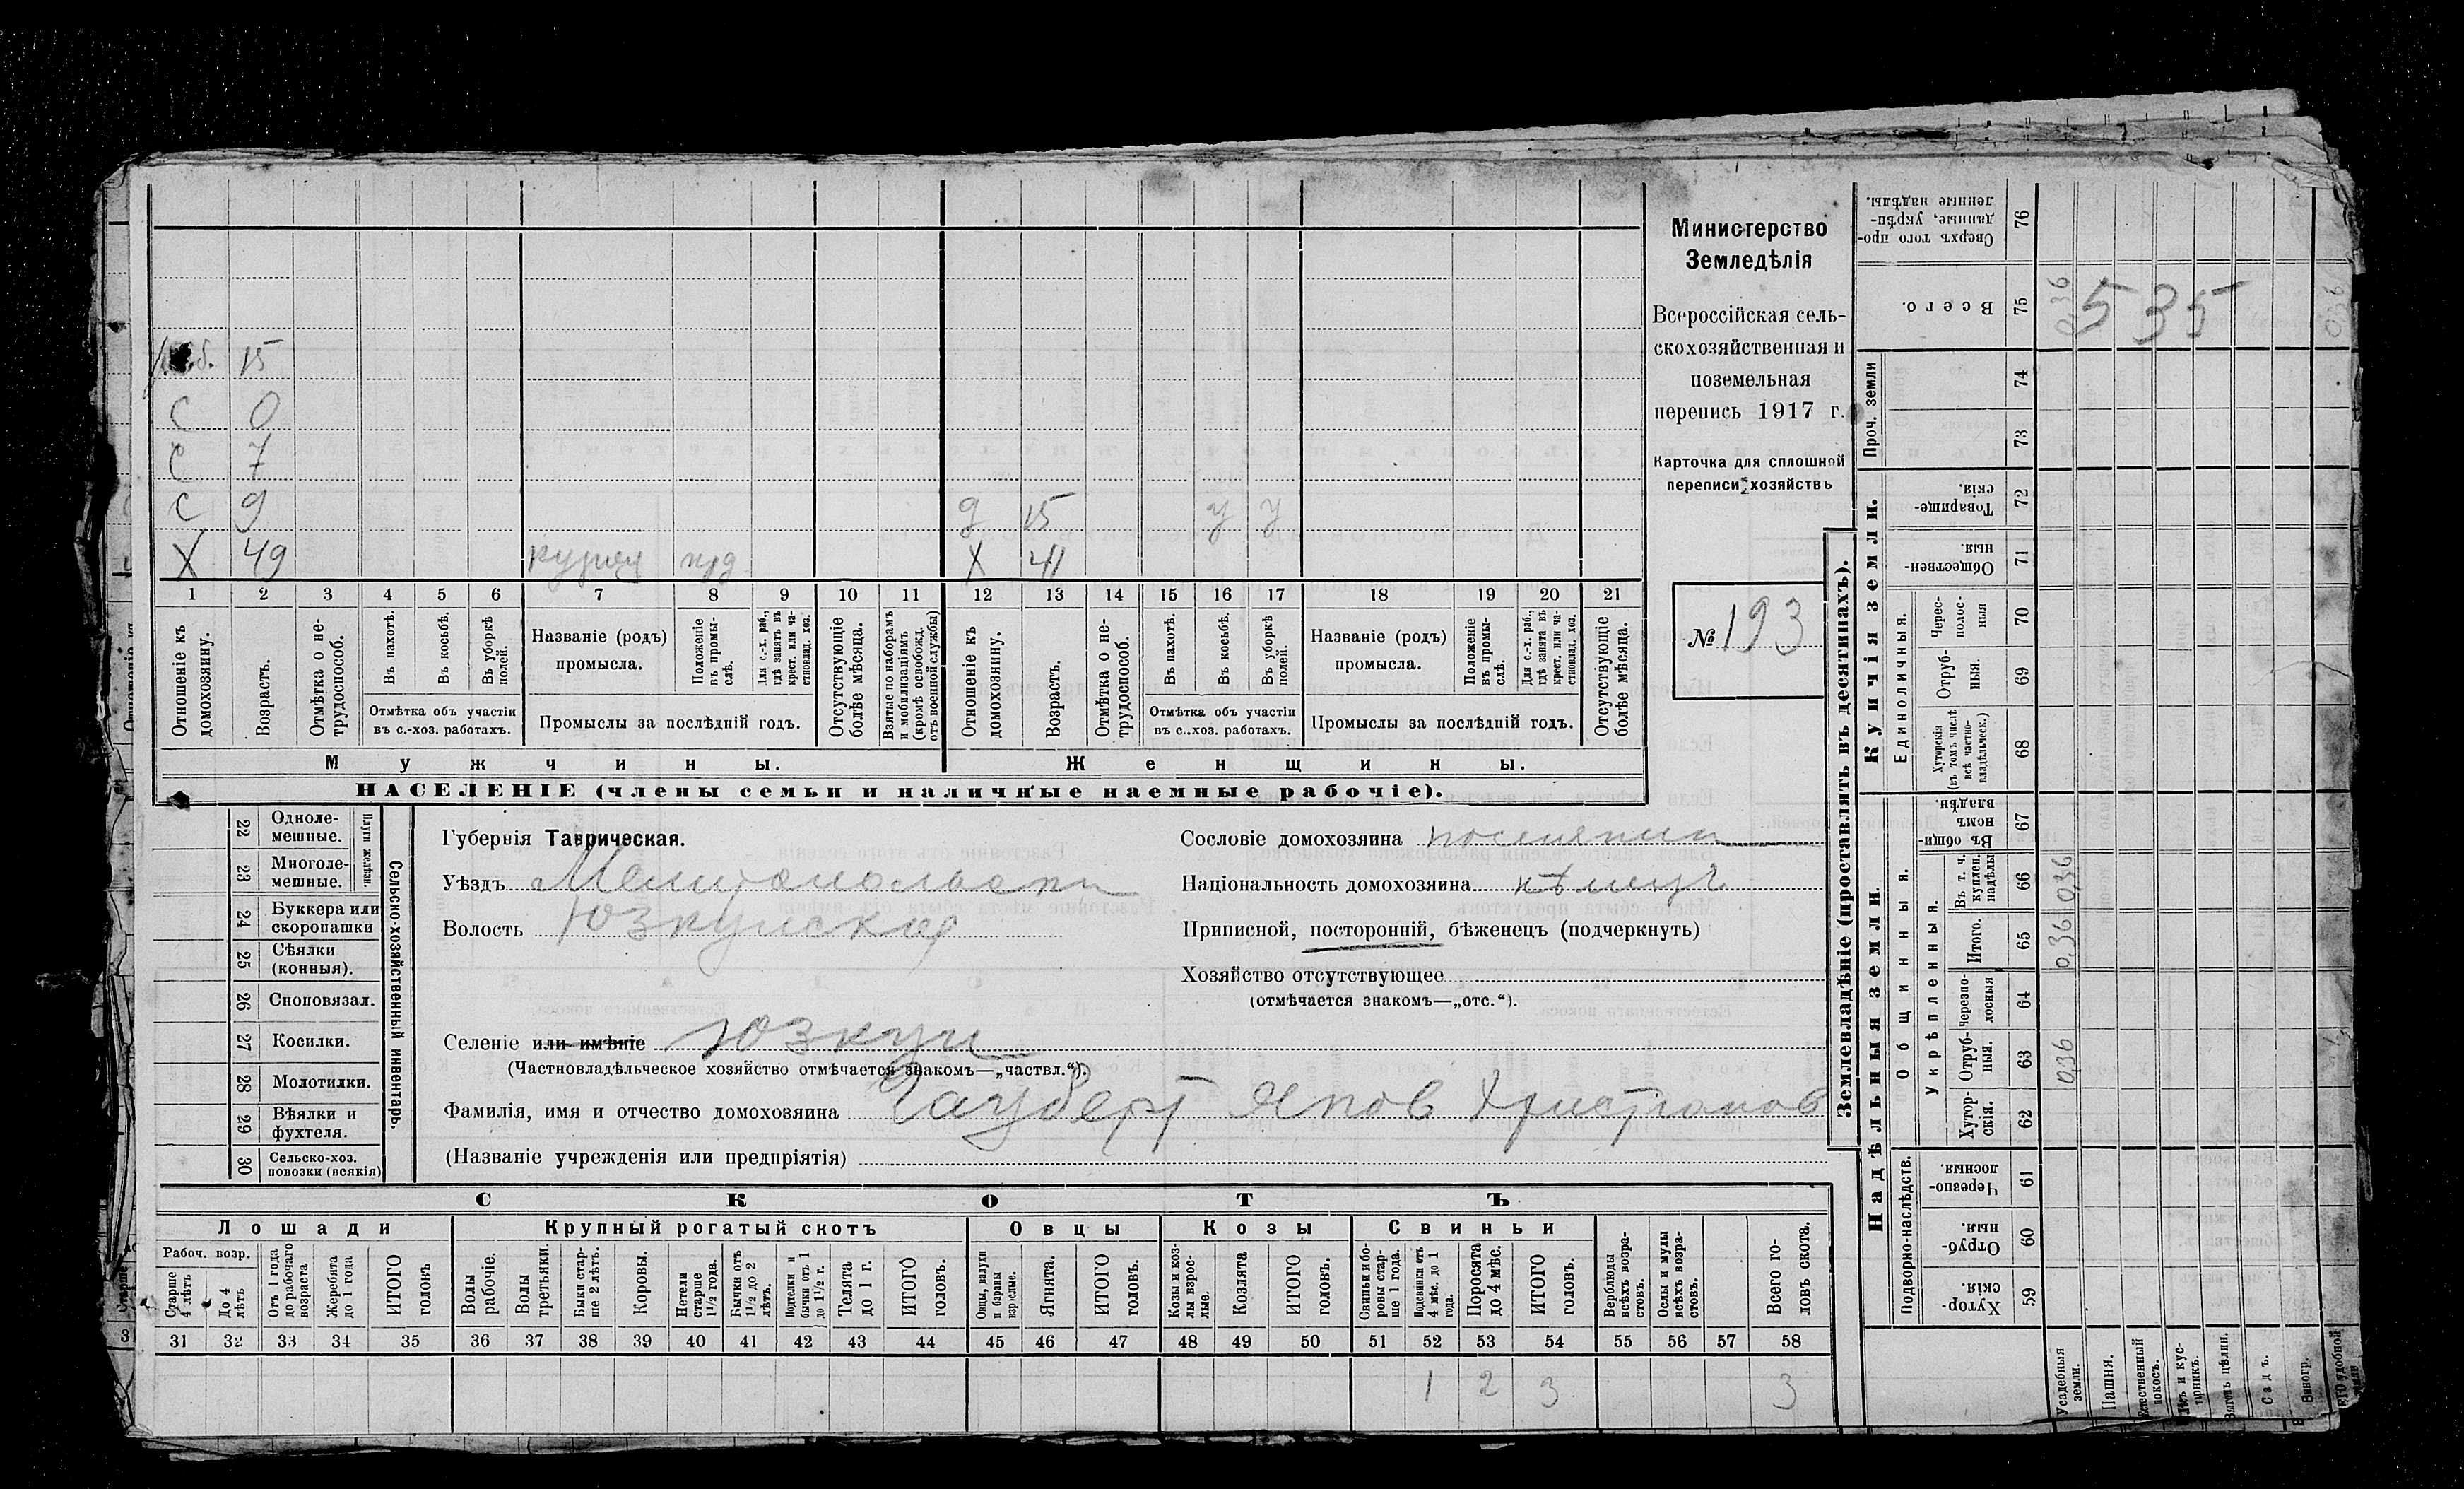 Министерство
Земледѣлія
Всероссійская сель-
скохозяйственная и
поземельная
перепись 1917 г.
Карточка для сплошной
переписи хозяйствъ
№ 193
15
С 0
С 7
С 9 д 15 у у
Х 49 кузнец Х 41
1 2 3 4 5 6 7 8 9 10 11 12 13 14 15 16 17 18 19 20 21
Отношеніе къ домохозяину.
Возрастъ.
Отмѣтка о не-трудоспособ.
Въ пахотѣ.
Въ косьбѣ.
Въ уборкѣ полей.
Отмѣтка объ участіи въ с.-хоз. работахъ.
Названіе (родъ) промысла.
Положеніе въ промы-слѣ.
Для с.-х. раб., гдѣ занятъ въ крест. или ча-стновлад. хоз.
Промыслы за послѣдній годъ.
Отсутствующіе болѣе мѣсяца.
Взятые по наборамъ и мобилизаціямъ (кромѣ освобожд. отъ военной службы)
Отношеніе къ домохозяину.
Возрастъ.
Отмѣтка о не-трудоспособ.
Въ пахотѣ.
Въ косьбѣ.
Въ уборкѣ полей.
Отмѣтка объ участіи въ с.-хоз. работахъ.
Названіе (родъ) промысла.
Положеніе въ промы-слѣ.
Для с.-х. раб., гдѣ занята въ крест. или ча-стновлад. хоз.
Промыслы за послѣдній годъ.
Отсутствующіе болѣе мѣсяца.
Мужчины. Женщины.
НАСЕЛЕНІЕ (члены семьи и наличные наемные рабочіе).
Сельско-хозяйственный инвентарь.
Плуги желѣзн.
22 Одноле-мешные.
23 Многоле-мешные.
24 Буккера или скоропашки
25 Сѣялки (конныя).
26 Сноповязал.
27 Косилки.
28 Молотилки.
29 Вѣялки и фухтеля.
30 Сельско-хоз. повозки (всякія)
Губернія Таврическая.
Уѣздъ Мелитопольскій
Волость Юзкуйская
Селеніе или имѣніе Юзкуи
(Частновладѣльческое хозяйство отмѣчается знакомъ—„частвл.“).
Фамилія, имя и отчество домохозяина Гауберт Яков Христианов
(Названіе учрежденія или предпріятія)
Сословіе домохозяина поселянин
Національность домохозяина нѣмец
Приписной, посторонній, бѣженецъ (подчеркнуть)
Хозяйство отсутствующее
(отмѣчается знакомъ—„отс.“).
СКОТЪ
Лошади Крупный рогатый скотъ Овцы Козы Свиньи
Рабоч. возр.
Старше 4 лѣтъ
До 4 лѣтъ
Отъ 1 года до рабочаго возраста
Жеребята до 1 года
ИТОГО головъ
Волы рабочіе.
Волы третьяки.
Быки стар-ше 2 лѣтъ.
Коровы.
Нетели старше 1½ года.
Бычки отъ 1½ до 2 лѣтъ.
Подтелки и бычки отъ 1 до 1½ г.
Телята до 1 г.
ИТОГО головъ.
Овцы, валухи и бараны взрослые.
Ягнята.
ИТОГО головъ.
Козы и коз-лы взрос-лые.
Козлята
ИТОГО головъ.
Свиньи и бо-ровы стар-ше 1 года.
Подсвинки отъ 4 мѣс. до 1 года.
Поросята до 4 мѣс.
ИТОГО головъ.
Верблюды всѣхъ возра-стовъ.
Ослы и мулы всѣхъ возра-стовъ.
Всего го-ловъ скота.
31 32 33 34 35 36 37 38 39 40 41 42 43 44 45 46 47 48 49 50 51 52 53 54 55 56 57 58
1 2 3 3
Землевладѣніе (проставлять въ десятинахъ).
Купчія земли.
Надѣльныя земли.
Проч. земли
Единоличныя.
Общинныя.
Укрѣпленныя.
Подворно-наслѣдств.
Сверхъ того про-данные, укрѣп-ленные надѣлы. 76
Всего. 75 0,36 535 0,36
74
73
Товарище-скія. 72
Обществен-ныя. 71
Черес-полос-ныя 70
Отруб-ныя. 69
Хуторскія (въ томъ числѣ всѣ частно-владѣльческ.) 68
Въ общи-номъ владѣн. 67
Въ т. ч. куплен. надѣлы 66 0,36
Итого. 65 0,36
Черезпо-лосныя 64
Отруб-ныя. 63 0,36
Хутор-скія. 62
Черезпо-лосныя. 61
Отруб-ныя. 60
Хутор-скія. 59
Усадебныя земли.
Пашня.
Естественный покосъ.
Лѣсъ и кус-тарникъ.
Выгонъ цѣлин.
Садъ.
Виногр.
удобной земли